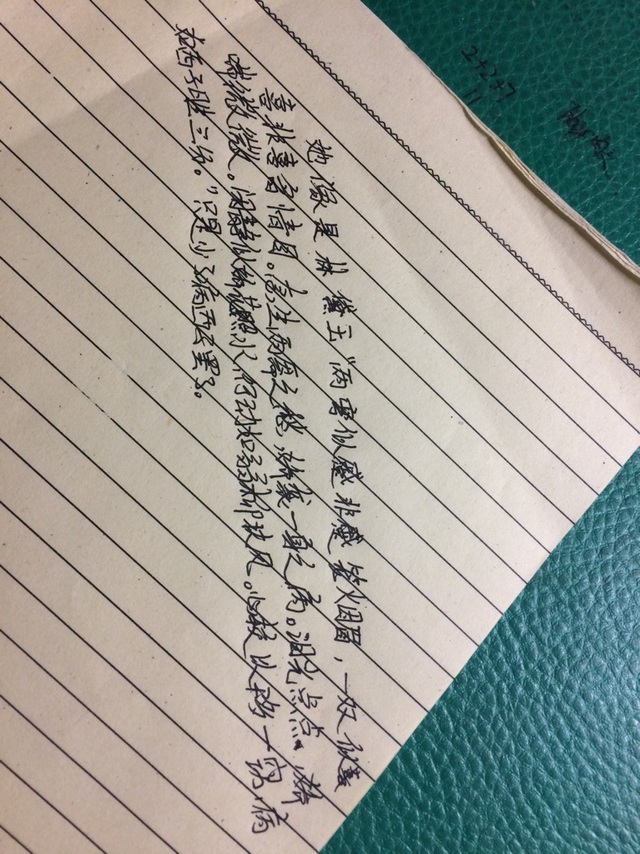 她像是林黛玉"两弯似蹙非蹙笼烟眉,一双似喜
非喜含情目。态生两靥之愁,娇袭一身之病。泪光点点,娇
喘微微。闲静似姣花照水,行动如弱柳扶风。心较比干多一窍,病
如西子胜三分。"只是少了病西云罢了。
2+2+7
11